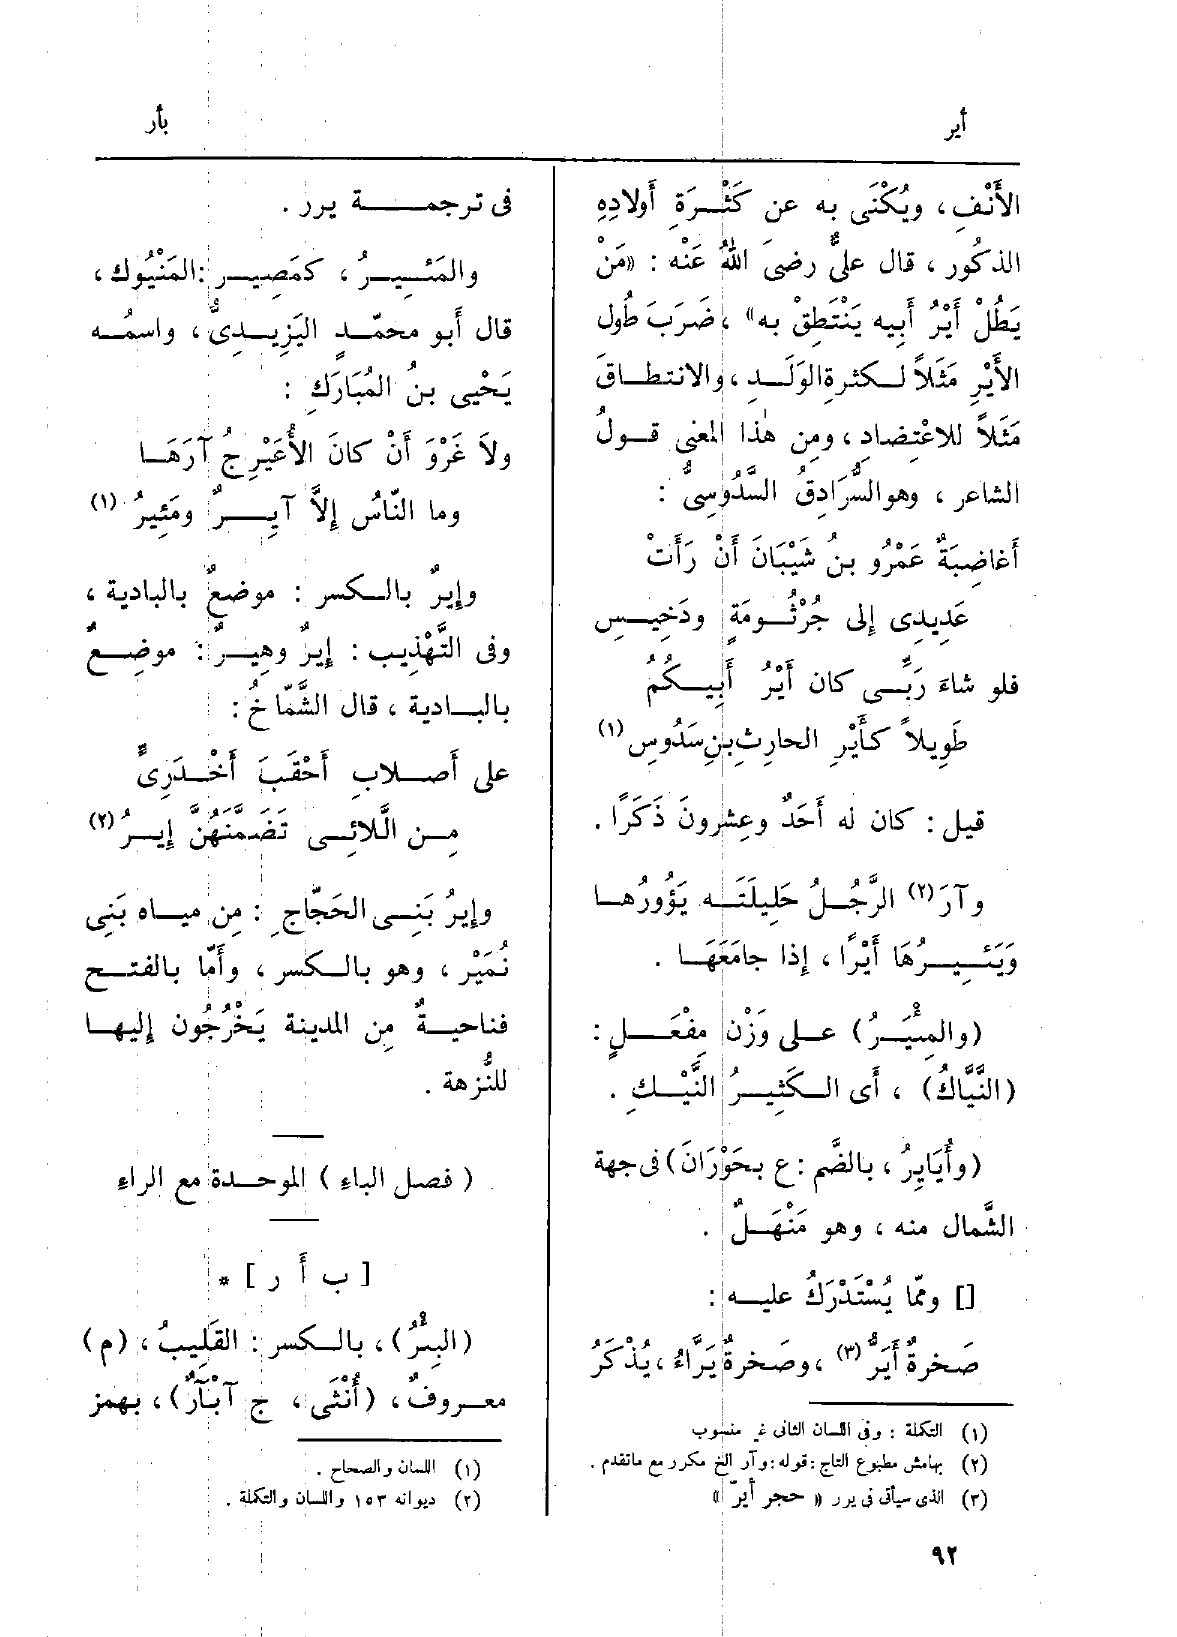 أير
بأر
الأَنْفِ، ويُكْنَى به عن كَثْرَةِ أَولادِهِ
الذكُور، قال علىٌّ رضىَ اللهُ عَنْه : «مَنْ
يَطُلْ أَيْرُ أَبيه يَنْتَطِقْ به»، ضَرَبَ طُول
الأَيْرِ مَثَلاً لكثرةِ الوَلَدِ، والانتطاقَ
مَثَلاً للاعْتِضادِ، ومِن هٰذا المعنى قولُ
الشاعر، وهو السُّرَادِقُ السَّدُوسِىُّ :
أَغاضِبَةٌ عَمْرُو بنُ شَيْبَانَ أَنْ رَأَتْ
عَدِيدِى إلى جُرْثُومَةٍ ودَخِيسِ
فلو شاءَ رَبِّى كان أَيْرُ أَبِيكُمُ
طَوِيلاً كأَيْرِ الحارِثِ بنِ سَدُوسِ (١)
قيل : كان له أَحَدٌ وعِشرونَ ذَكَرًا .
وآرَ (٢) الرَّجُلُ حَلِيلَتَه يَؤُورُها
وَيَئِيرُهَا أَيْرًا، إذا جامَعَهَا .
(والمِئْيَرُ) على وَزْن مِفْعَلٍ :
(النَّيَّاكُ)، أى الكَثِيرُ النَّيْكِ .
(وأُيَايِرُ، بالضَّم : ع بحَوْرَانَ) فى جهة
الشَّمال منه، وهو مَنْهَلٌ .
[] وممّا يُسْتَدْرَكُ عليه :
صَخرةٌ أَيَرُّ (٣)، وصَخرةٌ يَرَّاءُ، يُذْكَرُ
(١) التكملة : وفى اللسان الثانى غير منسوب
(٢) بهامش مطبوع التاج : قوله : وآر الخ مكرر مع ماتقدم .
(٣) الذى سيأتى فى يرر « حجر أيرّ »
فى ترجمة يرر .
والمَئِيرُ، كمَصِير : المَنْيُوك،
قال أَبو محمّدٍ اليَزِيدِىُّ، واسمُه
يَحْيى بنُ المُبَارَكِ :
ولاَ غَرْوَ أَنْ كانَ الأُعَيْرِجُ آرَهَا
وما النّاسُ إلاَّ آيِرٌ ومَئِيرُ (١)
وإيرٌ بالكسر : موضعٌ بالبادية،
وفى التَّهْذِيب : إيرٌ وهِيرٌ : موضِعٌ
بالبادية، قال الشَّمّاخُ :
على أَصلابِ أَحْقَبَ أَخْدَرِىٍّ
مِن الَّلائِى تَضَمَّنَهُنَّ إيرُ (٢)
وإيرُ بَنِى الحَجّاجِ : مِن مياه بَنِى
نُمَيْر، وهو بالكسر، وأَمّا بالفتح
فناحيةٌ مِن المدينة يَخْرُجُون إليها
للنُّزهة .
( فصل الباءِ ) الموحدة مع الراء
[ ب أَ ر ] *
(البِئْرُ)، بالكسر : القَلِيبُ، (م)
معروفٌ، (أُنْثَى، ج آبْآرٌ)، بهمز
(١) اللسان والصحاح .
(٢) ديوانه ١٥٣ واللسان والتكملة .
٩٢